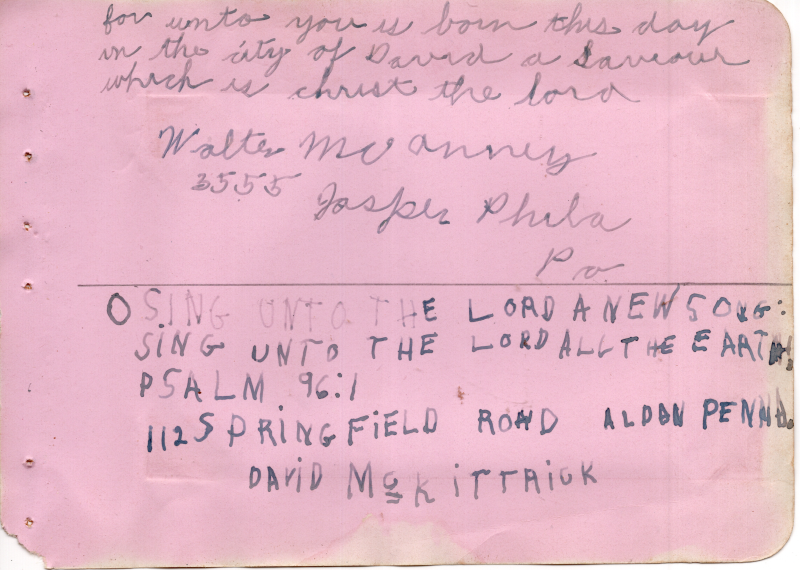 for unto you is born this day
in the city of David a Saveour
which is christ the lord
Walter McVanney
3555 Jasper Phila
Pa.
O SING UNTO THE LORD A NEW SONG:
SING UNTO THE LORD ALL THE EARTH!
PSALM 96:1
112 SPRINGFIELD ROAD ALDAN PENNA.
DAVID McKITTRICK